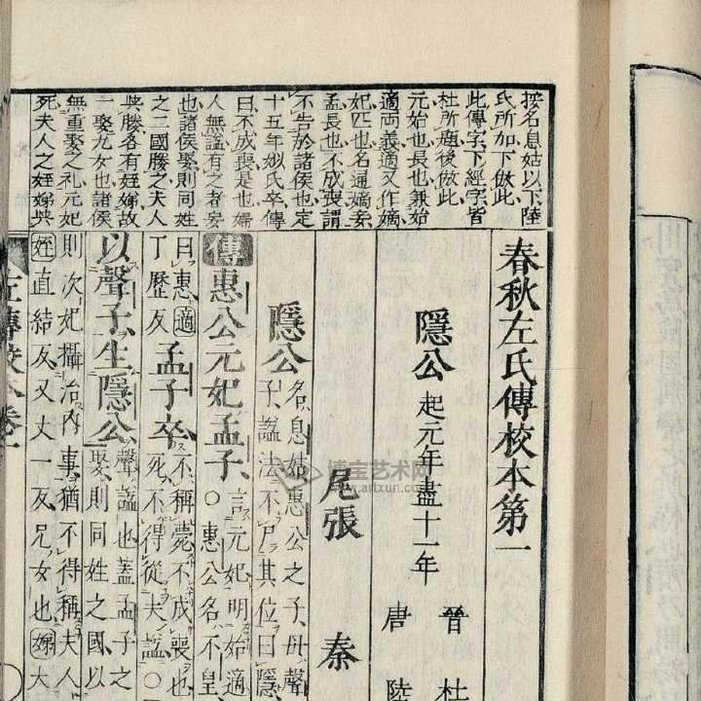 按名息姑以下陸
氏所加下倣此
此傳字下經字皆
杜所題後倣此
元始也長也兼始
適兩義適又作嫡
妃匹也名通嫡妾
孟長也不成喪謂
不告於諸侯也定
十五年姒氏卒傳
曰不成喪是也婦
人無謚有之者妄
也諸侯娶則同姓
之二國媵之夫人
與媵各有姪娣故
一娶九女也諸侯
無重娶之禮元妃
死夫人之姪娣與
春秋左氏傳校本第一
隱公 起元年盡十一年
晉 杜
唐 陸
尾張 秦
隱公 名息姑惠公之子母聲
子謚法不尸其位曰隱
傳惠公元妃孟子 言元妃明始適
○惠公名不皇
曰惠適
丁歷反
孟子卒 不稱薨不成喪也
死不得從夫謚○
以聲子生隱公 聲謚也蓋孟子之
娶則同姓之國以
則次妃攝治內事猶不得稱夫人
姪直結反又丈一反兄女也娣大
左傳校本卷一
博宝艺术网
www.artxun.com